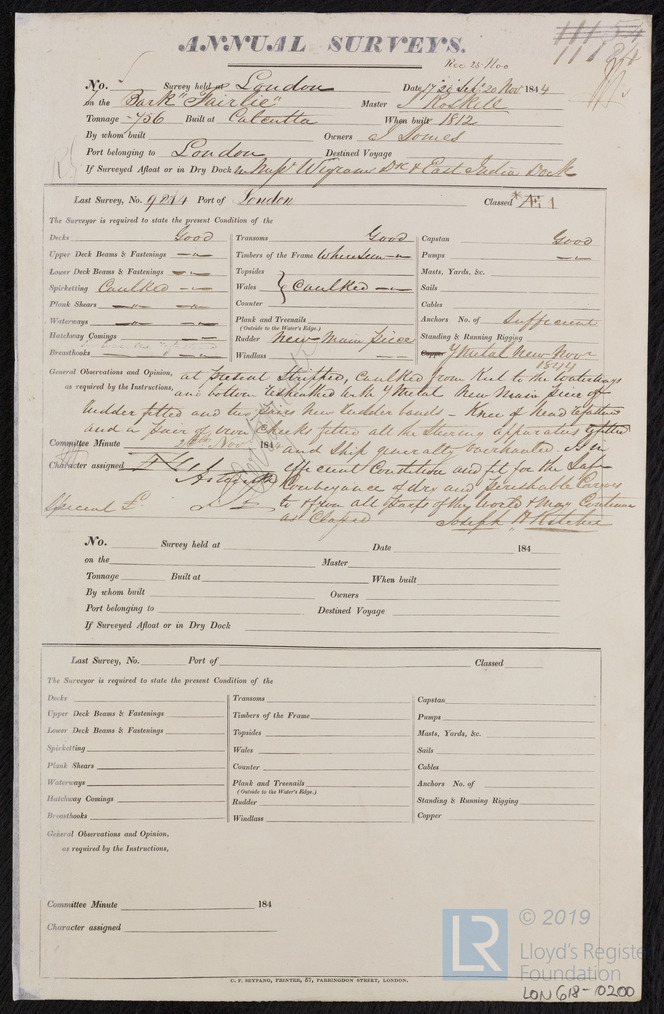 ANNUAL SURVEYS.
Rec 25 Nov
No. Survey held at London Date 20 Nov 1844
on the Bark "Fairlie" Master J Roskell
Tonnage 756 Built at Calcutta When built 1812
By whom built Owners J Somes
Port belonging to London Destined Voyage
If Surveyed Afloat or in Dry Dock Wigrams Dk & East India Dock
Last Survey, No. 9214 Port of London Classed Æ 1
The Surveyor is required to state the present Condition of the
Decks Good
Upper Deck Beams & Fastenings -"-
Lower Deck Beams & Fastenings -"-
Spirketting Caulked -"-
Plank Shears -"- -"-
Waterways -"- -"-
Hatchway Comings -"-
Breasthooks -"-
Transoms Good
Timbers of the Frame where seen -"-
Topsides
Wales } Caulked -"-
Counter
Plank and Treenails
(Outside to the Water's Edge.)
Rudder New Main Piece
Windlass -"-
Capstan Good
Pumps -"-
Masts, Yards, &c.
Sails
Cables
Anchors No. of Sufficient
Standing & Running Rigging
Copper Y Metal New Novr
1844
General Observations and Opinion,
as required by the Instructions,
at present Stripped, Caulked from Keel to the Waterways
and bottom resheathed with Y Metal New Main Piece of
Rudder fitted and two pairs New Rudder bands - Knee of Head
and a pair of iron Cheeks fitted all the Steering apparatus
and Ship generally overhauled. Is in
efficient Condition and fit for the Safe
Conveyance of dry and Perishable Cargoes
to & from all parts of the World & may Continue
as Classed Joseph H Ritchie
Committee Minute Nov 184
Character assigned Æ 1
Special
No. Survey held at Date 184
on the Master
Tonnage Built at When built
By whom built Owners
Port belonging to Destined Voyage
If Surveyed Afloat or in Dry Dock
Last Survey, No. Port of Classed
The Surveyor is required to state the present Condition of the
Decks
Upper Deck Beams & Fastenings
Lower Deck Beams & Fastenings
Spirketting
Plank Shears
Waterways
Hatchway Comings
Breasthooks
Transoms
Timbers of the Frame
Topsides
Wales
Counter
Plank and Treenails
(Outside to the Water's Edge.)
Rudder
Windlass
Capstan
Pumps
Masts, Yards, &c.
Sails
Cables
Anchors No. of
Standing & Running Rigging
Copper
General Observations and Opinion,
as required by the Instructions,
Committee Minute 184
Character assigned
C. F. SEYFANG, PRINTER, 57, FARRINGDON STREET, LONDON.
LR © 2019
Lloyd's Register
Foundation
LON 618-0200